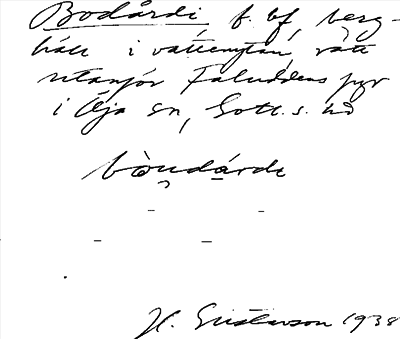 Bodårdi f. bf, berg-
häll i vattenytan, rätt
utanför Faluddens fyr
i Öja sn, Gotl. s. hd
bòndárdı
H. Gustavson 1938